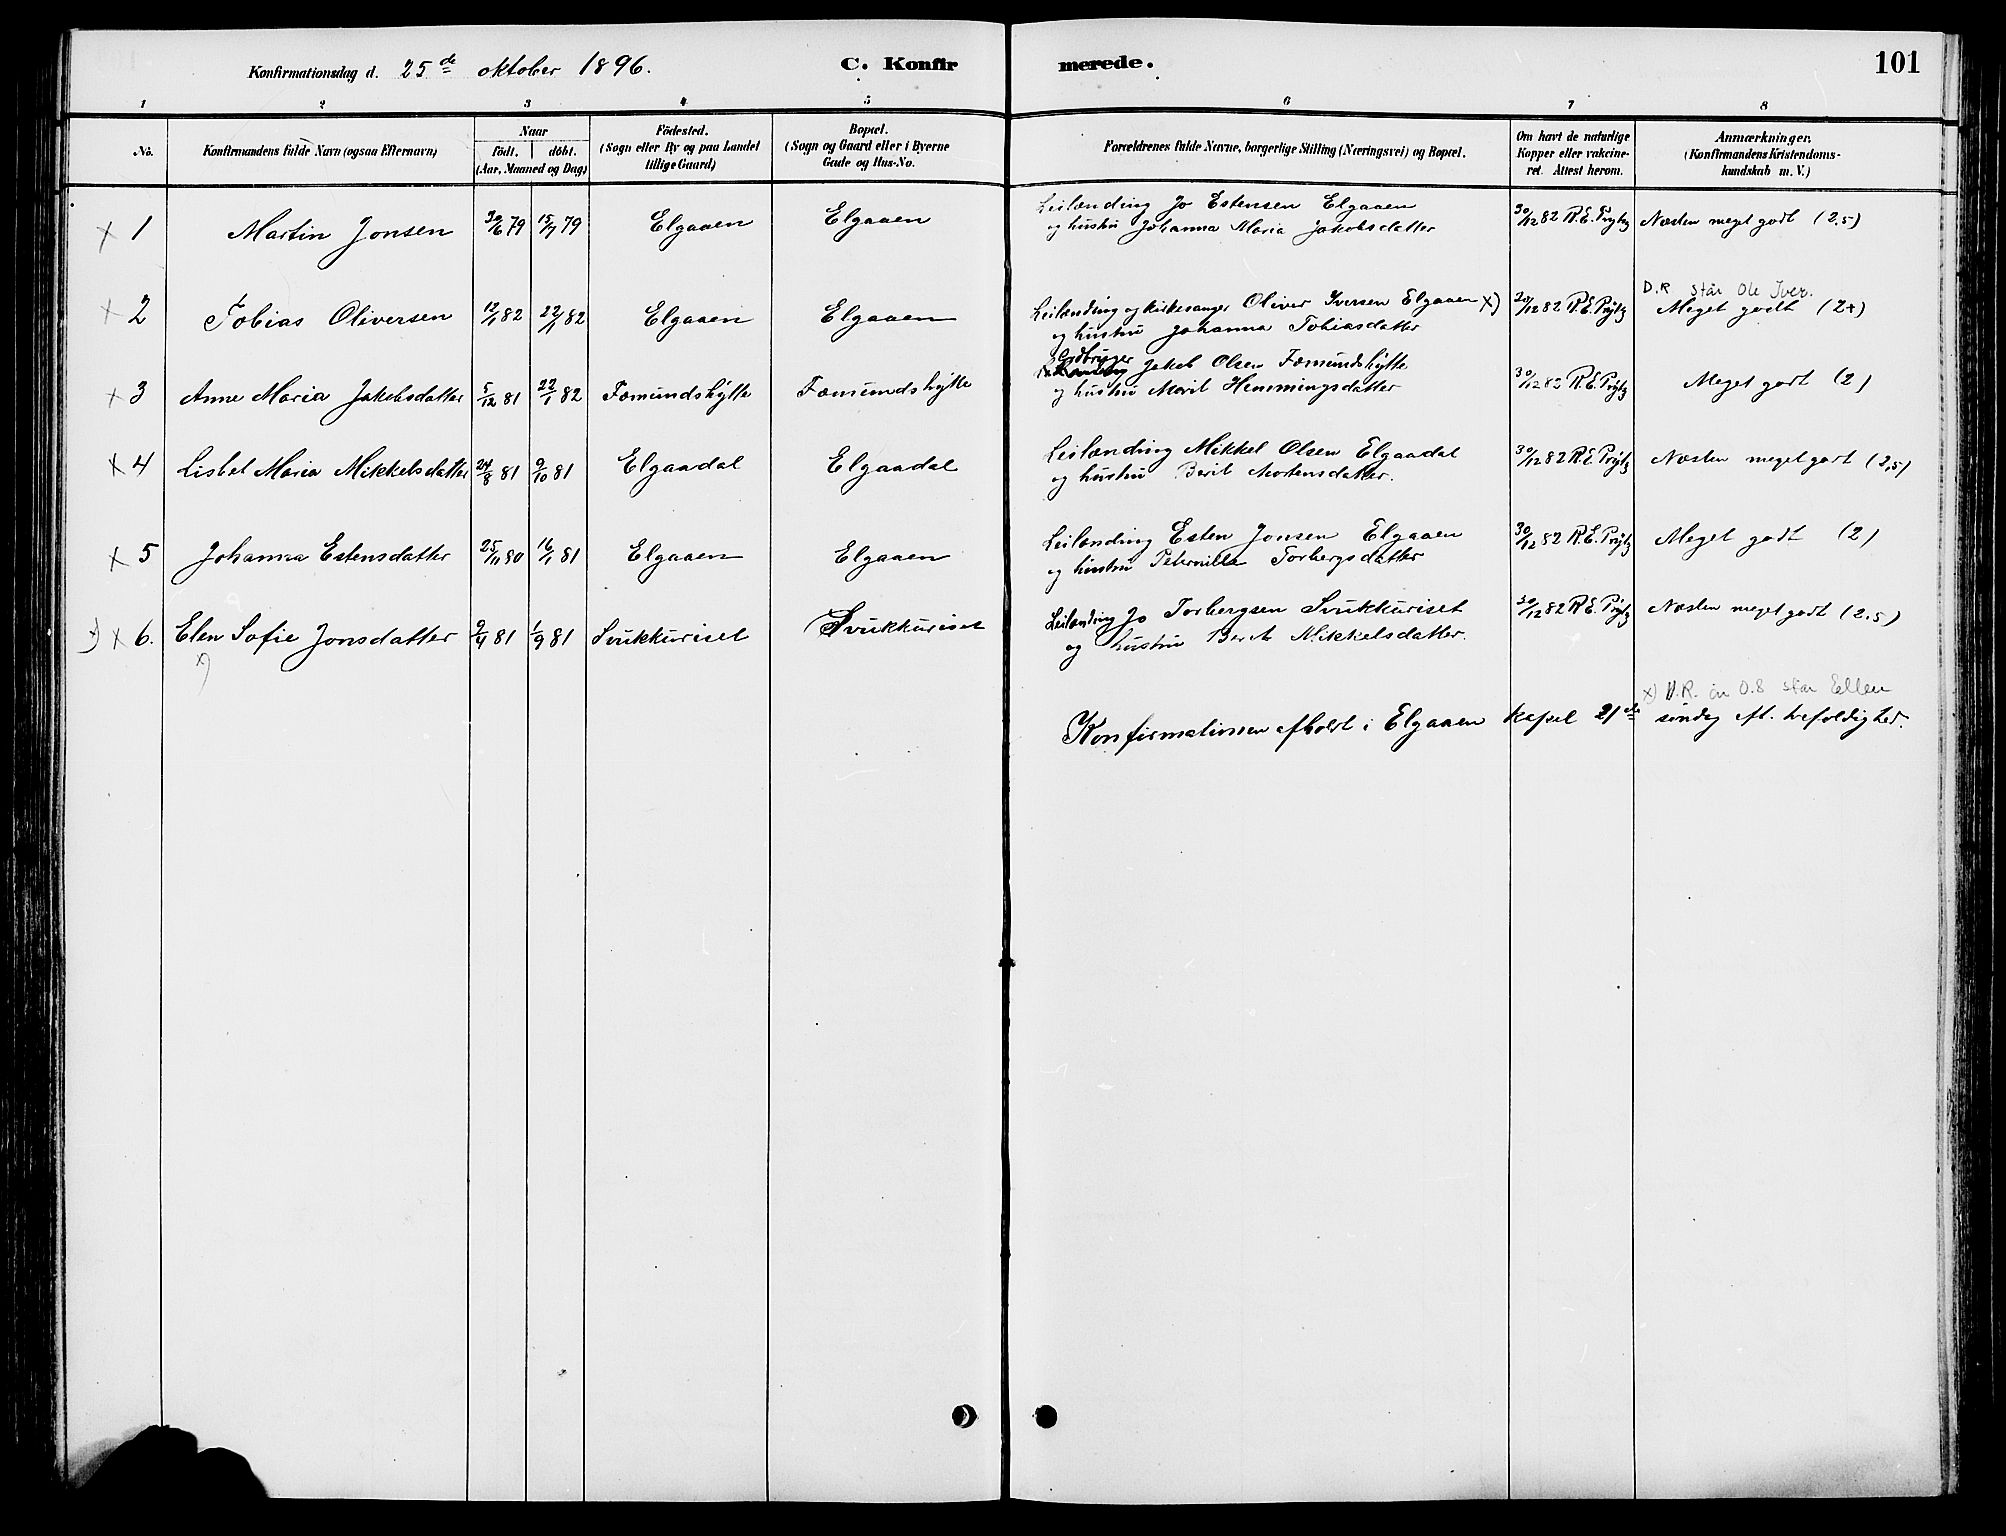 Konfirmationsdag d. 25de oktober 1896.
C. Konfirmerede.
101
1 2 3 4 5 6 7 8
No.
Konfirmandens fulde Navn (ogsaa Efternavn)
Naar
födt. | döbt.
(Aar, Maaned og Dag)
Födested.
(Sogn eller By og paa Landet
tillige Gaard)
Bopæl.
(Sogn og Gaard eller i Byerne
Gade og Hus-No.
Forældrenes fulde Navne, borgerlige Stilling (Næringsvei) og Bopæl.
Om havt de naturlige
Kopper eller vakcine-
ret. Attest herom.
Anmærkninger.
(Konfirmandens Kristendoms-
kundskab m. V.)
x 1 Martin Jonsen 30/6 79 15/7 79 Elgaaen Elgaaen
Leilænding Jo Estensen Elgaaen
og hustru Johanna Maria Jakobsdatter
30/12 82 R.E. Prytz Næsten meget godt (2,5)
x 2 Tobias Oliversen 12/1 82 22/1 82 Elgaaen Elgaaen
Leilænding og kirkesanger Oliver Iversen Elgaaen x)
og hustru Johanna Tobiasdatter
30/12 82 R.E. Prytz
D.R står Ole Iver.
Meget godt (2+)
x 3 Anne Maria Jakobsdatter 5/12 81 22/1 82 Fæmundshytte Fæmundshytte
Jordbruger
Jakob Olsen Fæmundshytte
og hustru Marit Hemmingsdatter
30/12 82 R.E. Prytz Meget godt (2)
x 4 Lisbet Maria Mikkelsdatter 24/8 81 9/10 81 Elgaadal Elgaadal
Leilænding Mikkel Olsen Elgaadal
og hustru Berit Mortensdatter.
30/12 82 R.E. Prytz Næsten meget godt (2,5)
x 5 Johanna Estensdatter 25/11 80 16/1 81 Elgaaen Elgaaen
Leilænding Esten Jonsen Elgaaen
og hustru Peternille Torbergsdatter
30/12 82 R.E. Prytz Meget godt (2)
x) x 6. Elen Sofie Jonsdatter 9/4 81 1/9 81 Svukkuriset Svukkuriset
x)
Leilænding Jo Torbergsen Svukkuriset
og hustru Berit Mikkelsdatter.
30/12 82 R.E. Prytz Næsten meget godt (2,5)
x) D.R. står Ellen
Konfirmationen afholdt i Elgaaen kapel 21de søndag eft. trefoldighed.